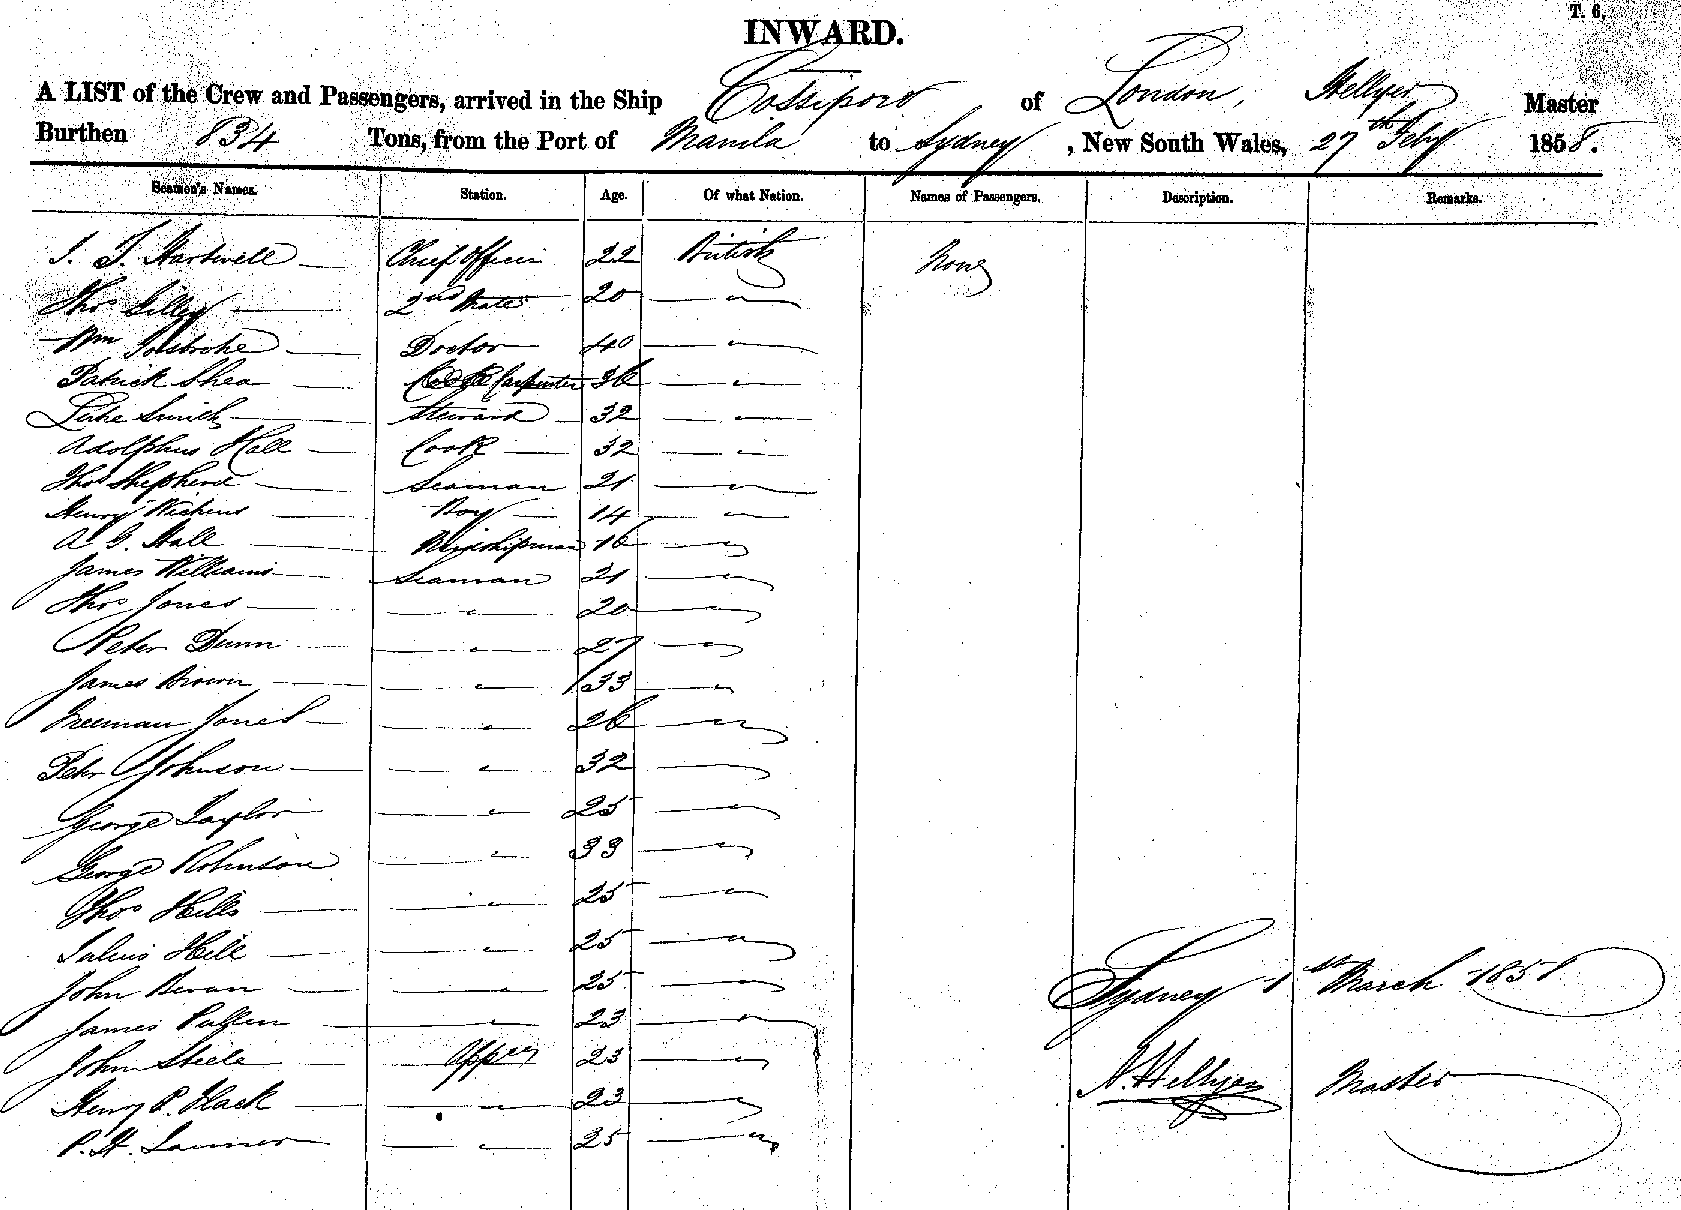 T. 6.
INWARD.
A LIST of the Crew and Passengers, arrived in the Ship Cossipore of London, Hellyer Master
Burthen 834 Tons, from the Port of Manila to Sydney, New South Wales, 27th Feby 1858.
Seamen's Names. Station. Age. Of what Nation. Names of Passengers. Description. Remarks.
J. T. Hartwell Chief Officer 22 British None
Thos Lilley 2nd Mate 20 "
Wm Doctor 40 "
Patrick Shea Carpenter 36 "
Luke Smith Steward 32 "
Adolphus Hall Cook 32 "
Thos Shepherd Seaman 21 "
Henry Wickens Boy 14 "
A G. Hall Midshipman 16 "
James Williams Seaman 21 "
Thos Jones " 20 "
Peter Dunn " 27 "
James Brown " 33 "
Freeman Jones " 26 "
Peter Johnson " 32 "
George Taylor " 25 "
George Robinson " 33 "
Thos Hills " 25 "
Julius Hill " 25 "
John Bevan " 25 "
James Pullen " 23 "
John Steele 23 "
Henry P. Black " 23 "
P. H. " 25 "
Sydney 1st March 1858
A. Hellyer Master